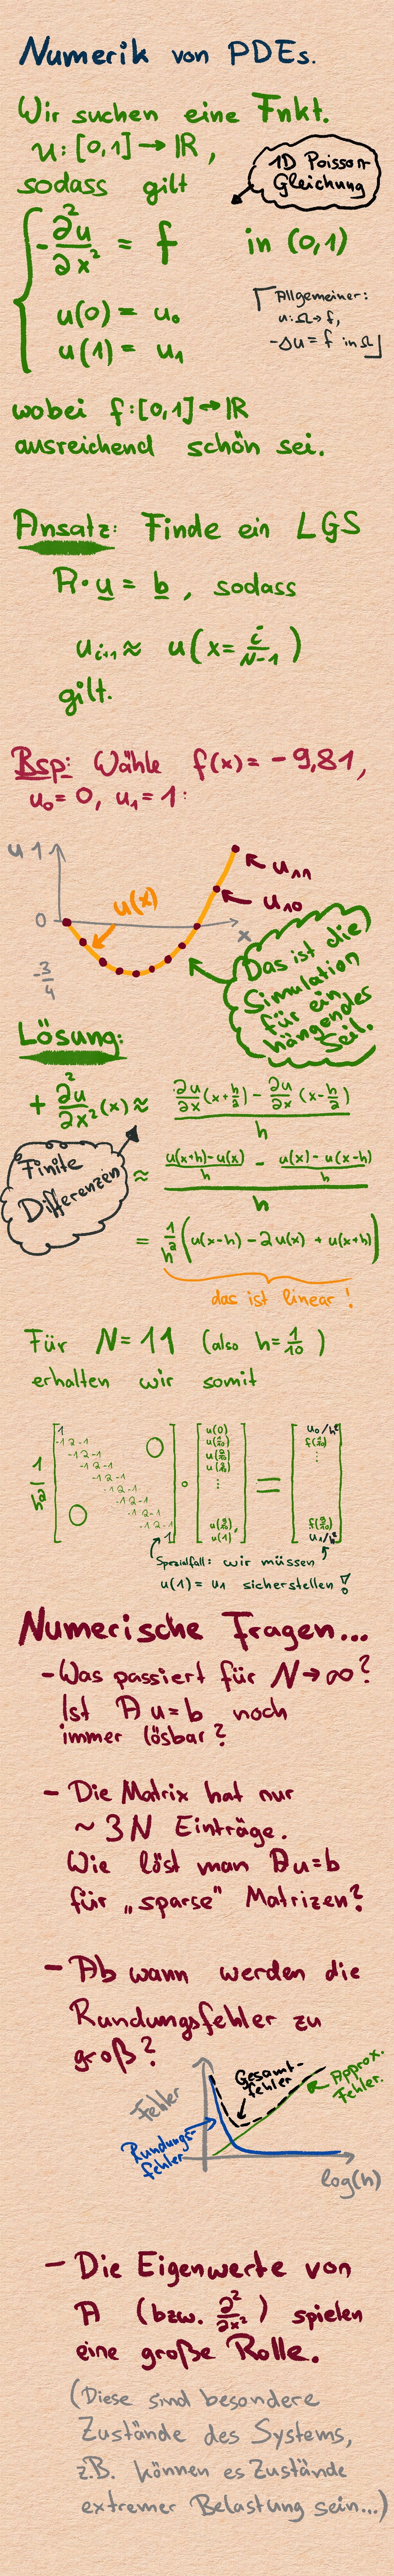 Numerik von PDEs.
Wir suchen eine Fnkt.
u: [0,1] → ℝ,
sodass gilt
1D Poisson
Gleichung
-∂²u/∂x² = f in (0,1)
u(0) = u₀
u(1) = u₁
Allgemeiner:
u: Ω → f,
-Δu = f in Ω
wobei f: [0,1] → ℝ
ausreichend schön sei.
Ansatz: Finde ein LGS
A · u = b, sodass
uᵢ₊₁ ≈ u(x = i/(N-1))
gilt.
Bsp: Wähle f(x) = -9,81,
u₀ = 0, u₁ = 1:
u 1
u₁₁
u(x)
u₁₀
0
x
-3/4
Das ist die
Simulation
für ein
hängendes
Seil.
Lösung:
+ ∂²u/∂x² (x) ≈ (∂u/∂x (x+h/2) - ∂u/∂x (x-h/2)) / h
Finite
Differenzen
≈ ((u(x+h)-u(x))/h - (u(x)-u(x-h))/h) / h
= 1/h² (u(x-h) - 2u(x) + u(x+h))
das ist linear!
Für N = 11 (also h = 1/10)
erhalten wir somit
1/h²
1
-1 2 -1
-1 2 -1
-1 2 -1
-1 2 -1
-1 2 -1
-1 2 -1
-1 2 -1
-1 2 -1
1
0
0
·
u(0)
u(1/10)
u(2/10)
u(3/10)
⋮
u(9/10)
u(1)
=
u₀/h²
f(1/10)
⋮
f(9/10)
u₁/h²
Spezialfall: wir müssen
u(1) = u₁ sicherstellen!
Numerische Fragen...
- Was passiert für N → ∞?
Ist A u = b noch
immer lösbar?
- Die Matrix hat nur
~ 3N Einträge.
Wie löst man Au = b
für „sparse" Matrizen?
- Ab wann werden die
Rundungsfehler zu
groß?
Fehler
Gesamt-
fehler
Approx.
Fehler.
Rundungs-
fehler
log(h)
- Die Eigenwerte von
A (bzw. ∂²/∂x²) spielen
eine große Rolle.
(Diese sind besondere
Zustände des Systems,
z.B. können es Zustände
extremer Belastung sein...)